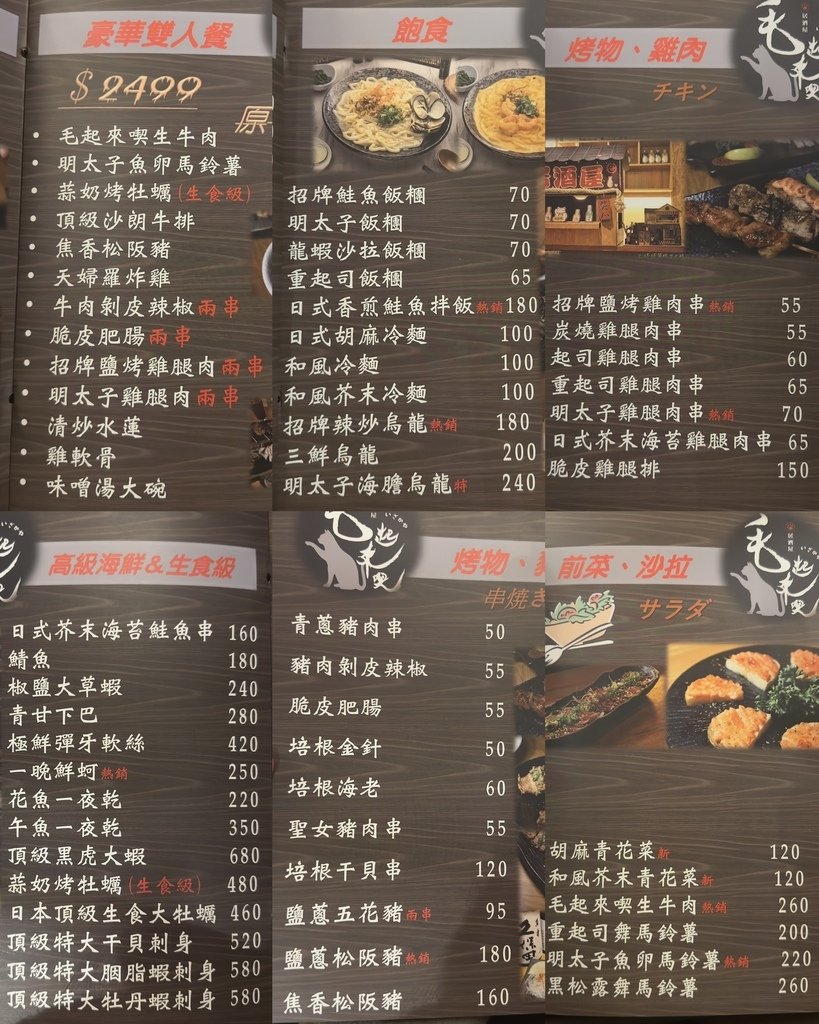 豪華雙人餐
$2499
原
• 毛起來喫生牛肉
• 明太子魚卵馬鈴薯
• 蒜奶烤牡蠣(生食級)
• 頂級沙朗牛排
• 焦香松阪豬
• 天婦羅炸雞
• 牛肉剝皮辣椒兩串
• 脆皮肥腸兩串
• 招牌鹽烤雞腿肉兩串
• 明太子雞腿肉兩串
• 清炒水蓮
• 雞軟骨
• 味噌湯大碗
飽食
招牌鮭魚飯糰 70
明太子飯糰 70
龍蝦沙拉飯糰 70
重起司飯糰 65
日式香煎鮭魚拌飯熱銷 180
日式胡麻冷麵 100
和風冷麵 100
和風芥末冷麵 100
招牌辣炒烏龍熱銷 180
三鮮烏龍 200
明太子海膽烏龍特 240
烤物、雞肉
チキン
居酒屋
毛起來喫
酒屋
招牌鹽烤雞肉串熱銷 55
炭燒雞腿肉串 55
起司雞腿肉串 60
重起司雞腿肉串 65
明太子雞腿肉串熱銷 70
日式芥末海苔雞腿肉串 65
脆皮雞腿排 150
高級海鮮&生食級
いざかや
日式芥末海苔鮭魚串 160
鯖魚 180
椒鹽大草蝦 240
青甘下巴 280
極鮮彈牙軟絲 420
一晚鮮蚵熱銷 250
花魚一夜乾 220
午魚一夜乾 350
頂級黑虎大蝦 680
蒜奶烤牡蠣(生食級) 480
日本頂級生食大牡蠣 460
頂級特大干貝刺身 520
頂級特大胭脂蝦刺身 580
頂級特大牡丹蝦刺身 580
毛起來喫
いざかや
烤物、
串焼き
青蔥豬肉串 50
豬肉剝皮辣椒 55
脆皮肥腸 55
培根金針 50
培根海老 60
聖女豬肉串 55
培根干貝串 120
鹽蔥五花豬兩串 95
鹽蔥松阪豬熱銷 180
焦香松阪豬 160
前菜、沙拉
サラダ
居酒屋
いざかや
毛起來喫
胡麻青花菜新 120
和風芥末青花菜新 120
毛起來喫生牛肉熱銷 260
重起司舞馬鈴薯 200
明太子魚卵馬鈴薯熱銷 220
黑松露舞馬鈴薯 260